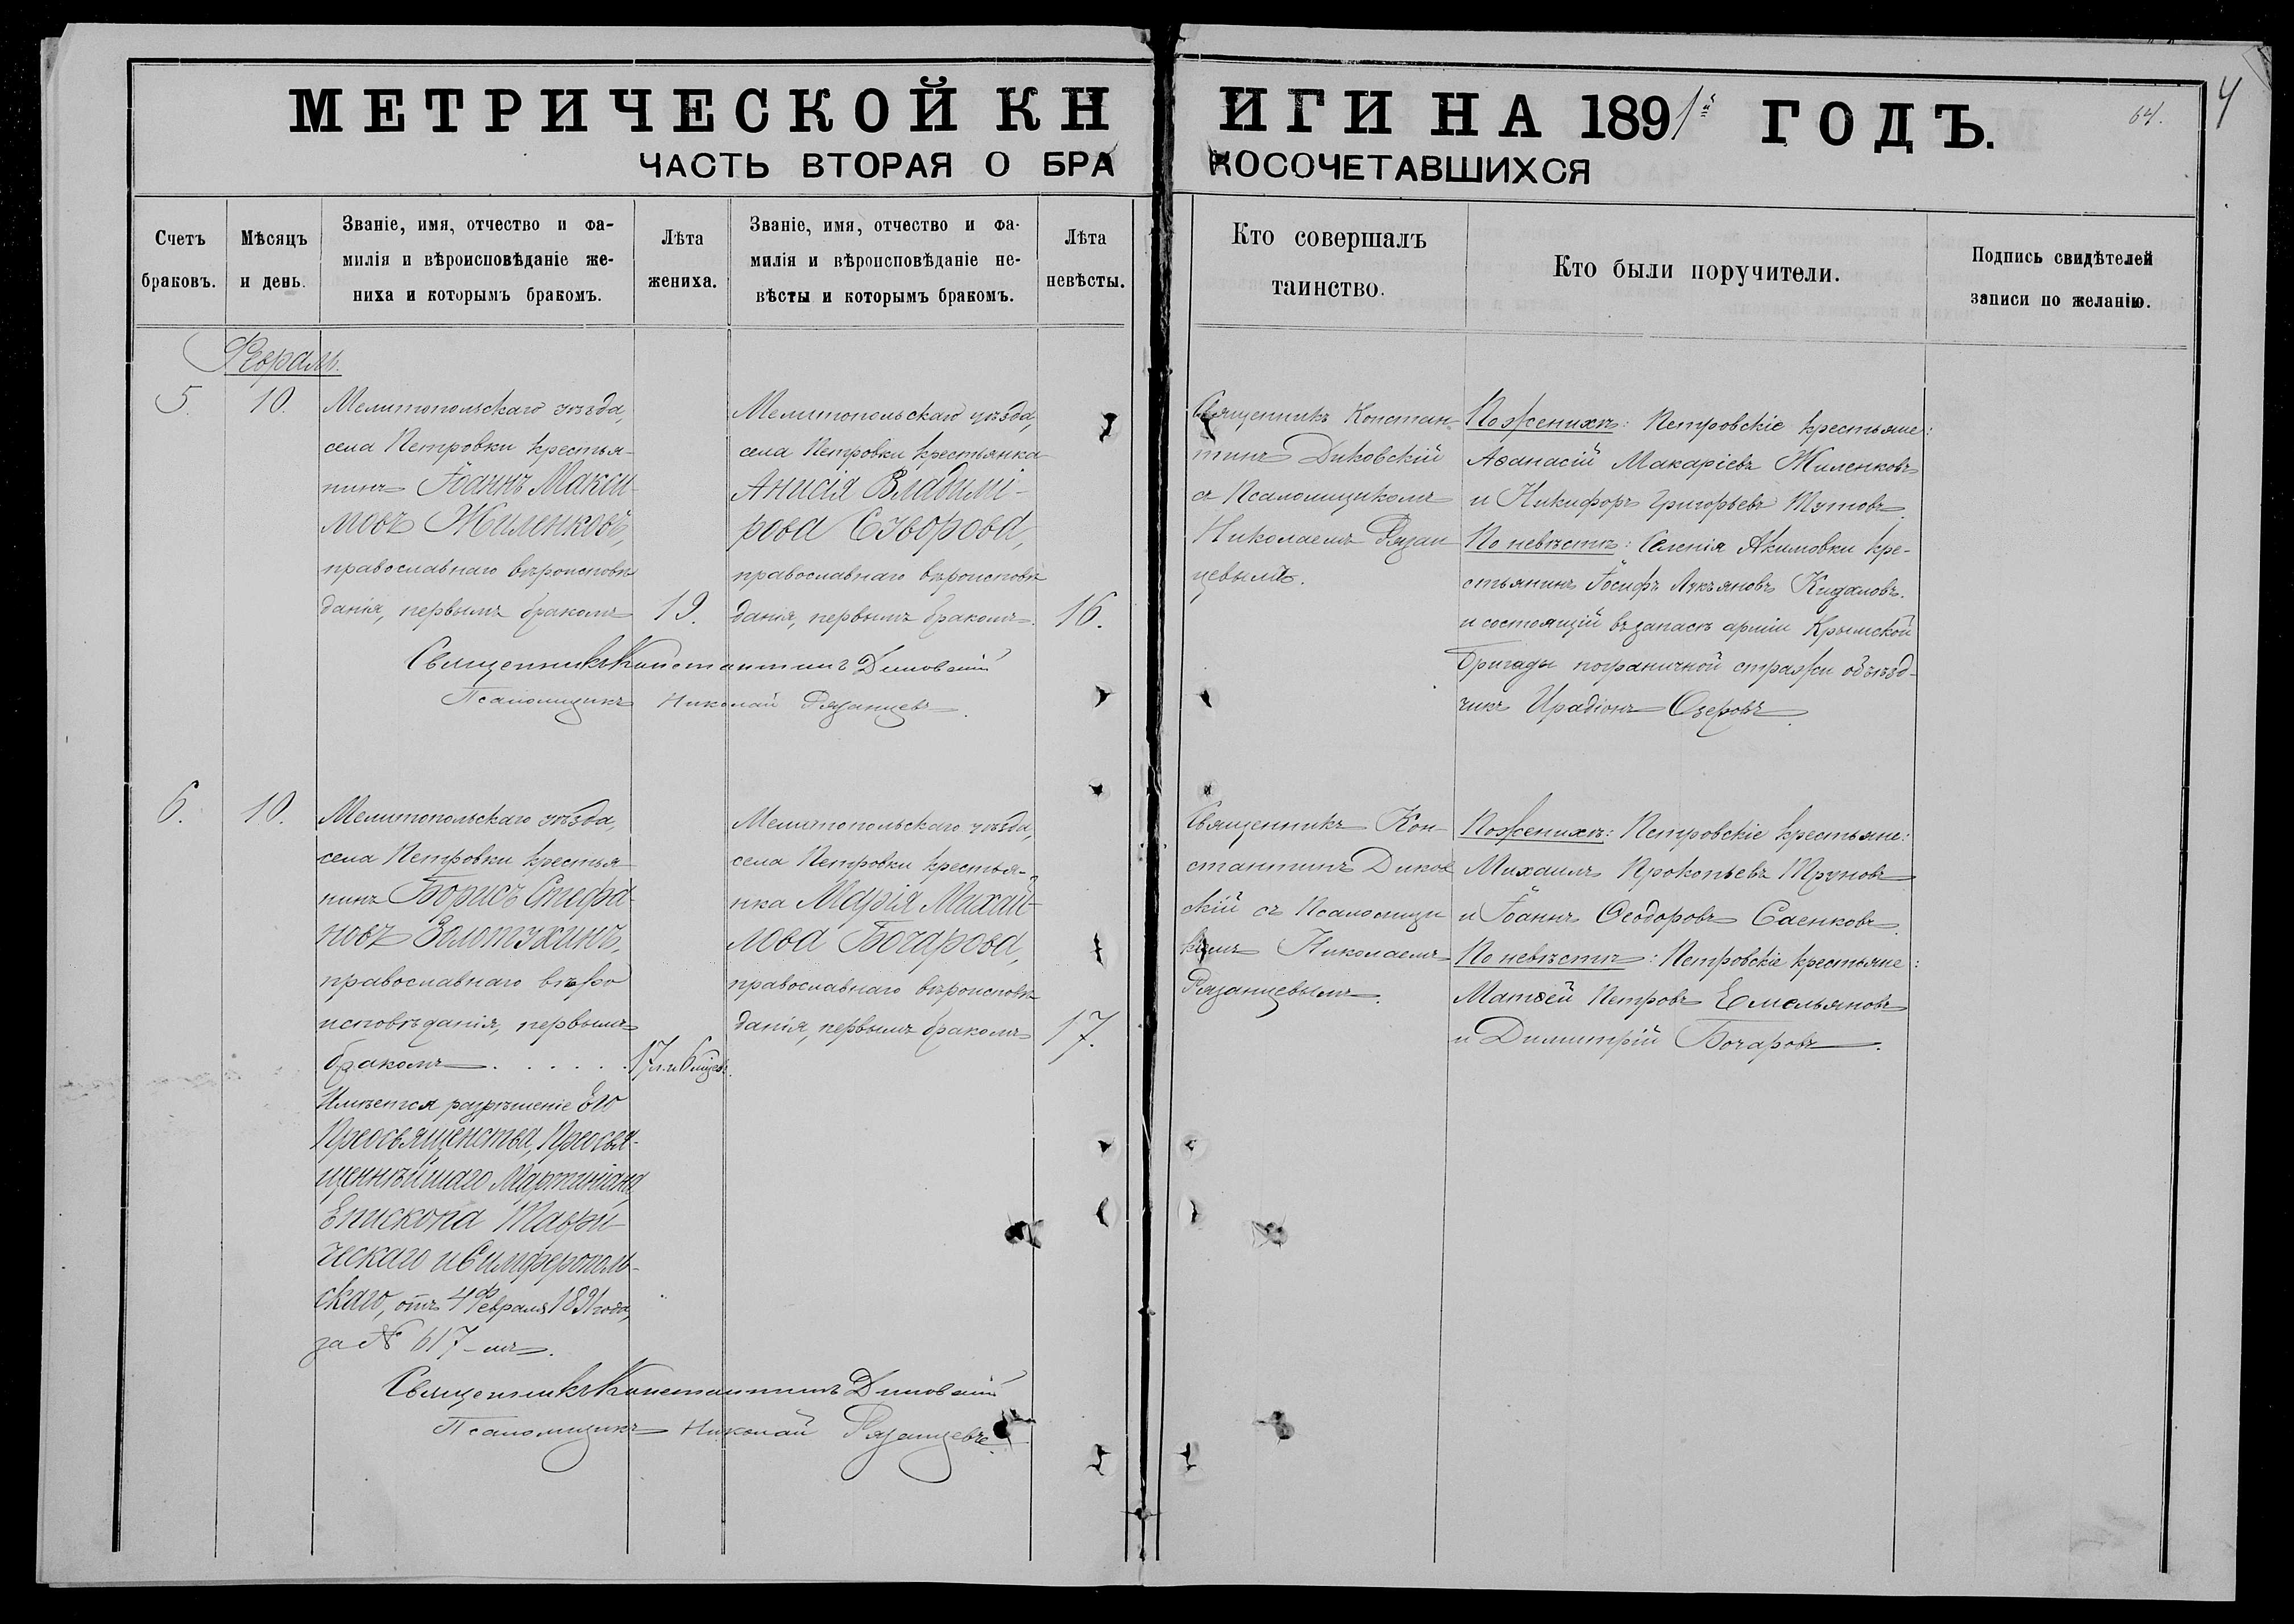 МЕТРИЧЕСКОЙ КН ИГИ НА 1891й ГОДЪ.
64.
4
ЧАСТЬ ВТОРАЯ О БРА КОСОЧЕТАВШИХСЯ
Счетъ браковъ.
Мѣсяцъ и день.
Званіе, имя, отчество и фа-
милія и вѣроисповѣданіе же-
ниха и которымъ бракомъ.
Лѣта жениха.
Званіе, имя, отчество и фа-
милія и вѣроисповѣданіе не-
вѣсты и которымъ бракомъ.
Лѣта невѣсты.
Кто совершалъ
таинство.
Кто были поручители.
Подпись свидѣтелей
записи по желанію.
Февраль.
5.
10.
Мелитопольскаго уѣзда,
села Петровки крестья-
нинъ Іоаннъ Макси-
мовъ Жиленковъ,
православнаго вѣроисповѣ
данія, первымъ бракомъ
19.
Мелитопольскаго уѣзда,
села Петровки крестьянка
Анисія Владимі-
рова Суворова,
православнаго вѣроисповѣ
данія, первымъ бракомъ.
16.
Священникъ Констан-
тинъ Диковскій
съ Псаломщикомъ
Николаемъ Рязан
цевымъ.
По женихѣ: Петровскіе крестьяне:
Аѳанасій Макаріевъ Жиленковъ
и Никифоръ Григорьевъ Тутовъ.
По невѣстѣ: Селенія Акимовки кре-
стьянинъ Іосифъ Лукьяновъ Кидаловъ.
и состоящій въ запасѣ арміи Крымской
бригады пограничной стражи объѣзд-
чикъ Ирадіонъ Озеровъ.
Священникъ Константинъ Диковскій
Псаломщикъ Николай Рязанцевъ.
6.
10.
Мелитопольскаго уѣзда,
села Петровки крестья
нинъ Борисъ Стефа-
новъ Золотухинъ,
православнаго вѣро
исповѣданія, первымъ
бракомъ . . . . . .
17 л. и 6 мцев.
Имѣется разрѣшеніе Его
Преосвященства, Преосвя-
щеннѣйшаго Мартиніана
Епископа Таври-
ческаго и Симферополь-
скаго, отъ 4 февраля 1891 года,
за № 617-мъ.
Мелитопольскаго уѣзда,
села Петровки крестья-
нка Марія Михай-
лова Бочарова,
православнаго вѣроисповѣ
данія, первымъ бракомъ
17.
Священникъ Кон-
стантинъ Диков
скій съ Псаломщи
комъ Николаемъ
Рязанцевымъ.
По женихѣ: Петровскіе крестьяне:
Михаилъ Прокопьевъ Труновъ
и Іоаннъ Ѳеодоровъ Саенковъ.
По невѣстѣ: Петровскіе крестьяне:
Матѳей Петровъ Емельяновъ
и Димитрій Бочаровъ.
Священникъ Константинъ Диковскій
Псаломщикъ Николай Рязанцевъ.